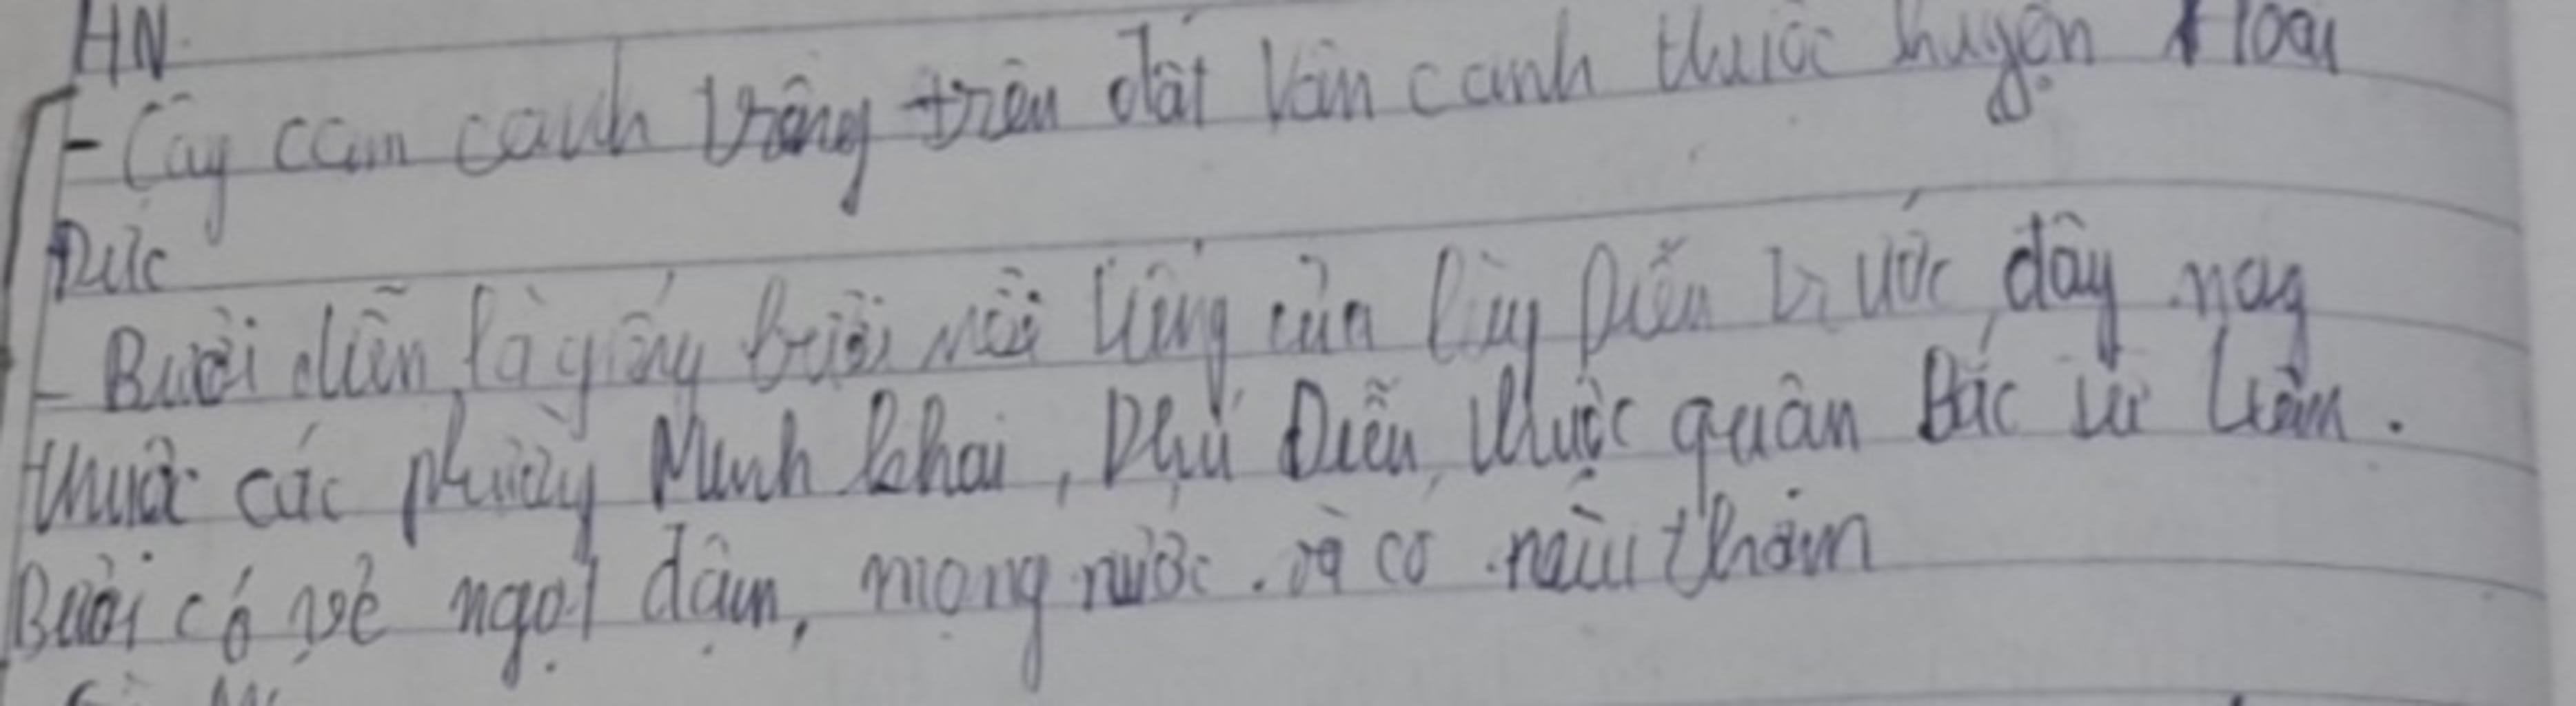 HN.
- Cây cam canh trồng trên đất Vân canh thuộc huyện Hoài
Đức
- Bưởi diễn là giống bưởi nổi tiếng của Diễn trước đây nay
thuộc các phường Minh Khai, Phú Diễn, thuộc quận Bắc từ Liêm.
Bưởi có ngọt đậm, mọng nước. và có thơm